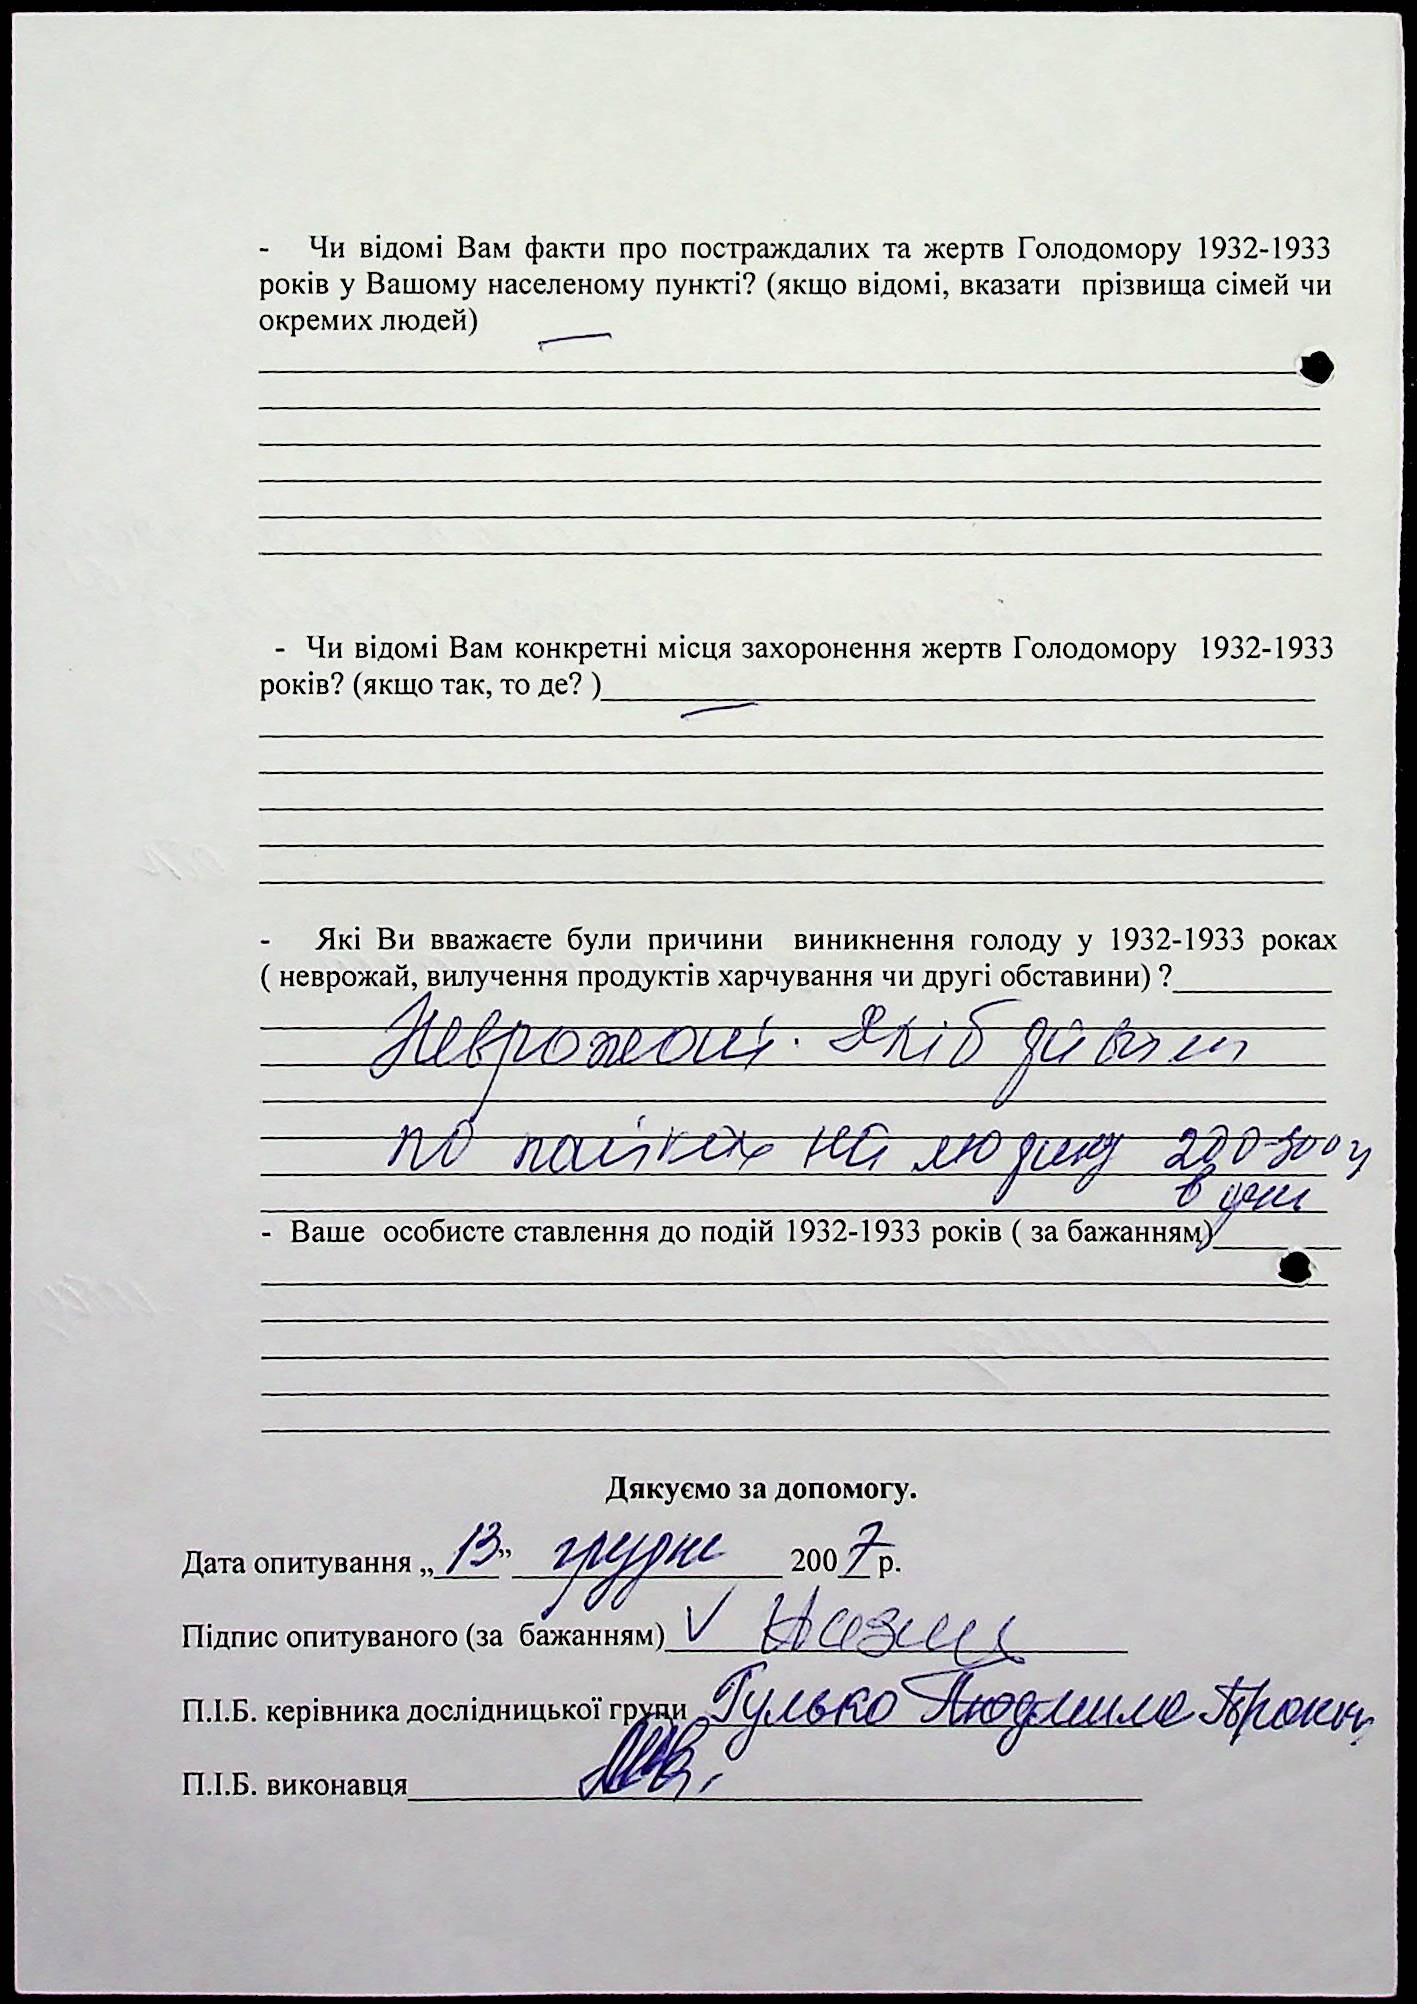 - Чи відомі Вам факти про постраждалих та жертв Голодомору 1932-1933
років у Вашому населеному пункті? (якщо відомі, вказати прізвища сімей чи
окремих людей)
- Чи відомі Вам конкретні місця захоронення жертв Голодомору 1932-1933
років? (якщо так, то де? )
- Які Ви вважаєте були причини виникнення голоду у 1932-1933 роках
( неврожай, вилучення продуктів харчування чи другі обставини) ?
Неврожаї. Хліб давали
по пайках на людину 200-300 г
в день
- Ваше особисте ставлення до подій 1932-1933 років ( за бажанням)
Дякуємо за допомогу.
Дата опитування „13” грудня 2007 р.
Підпис опитуваного (за бажанням) V
П.І.Б. керівника дослідницької групи Гулько Людмила
П.І.Б. виконавця